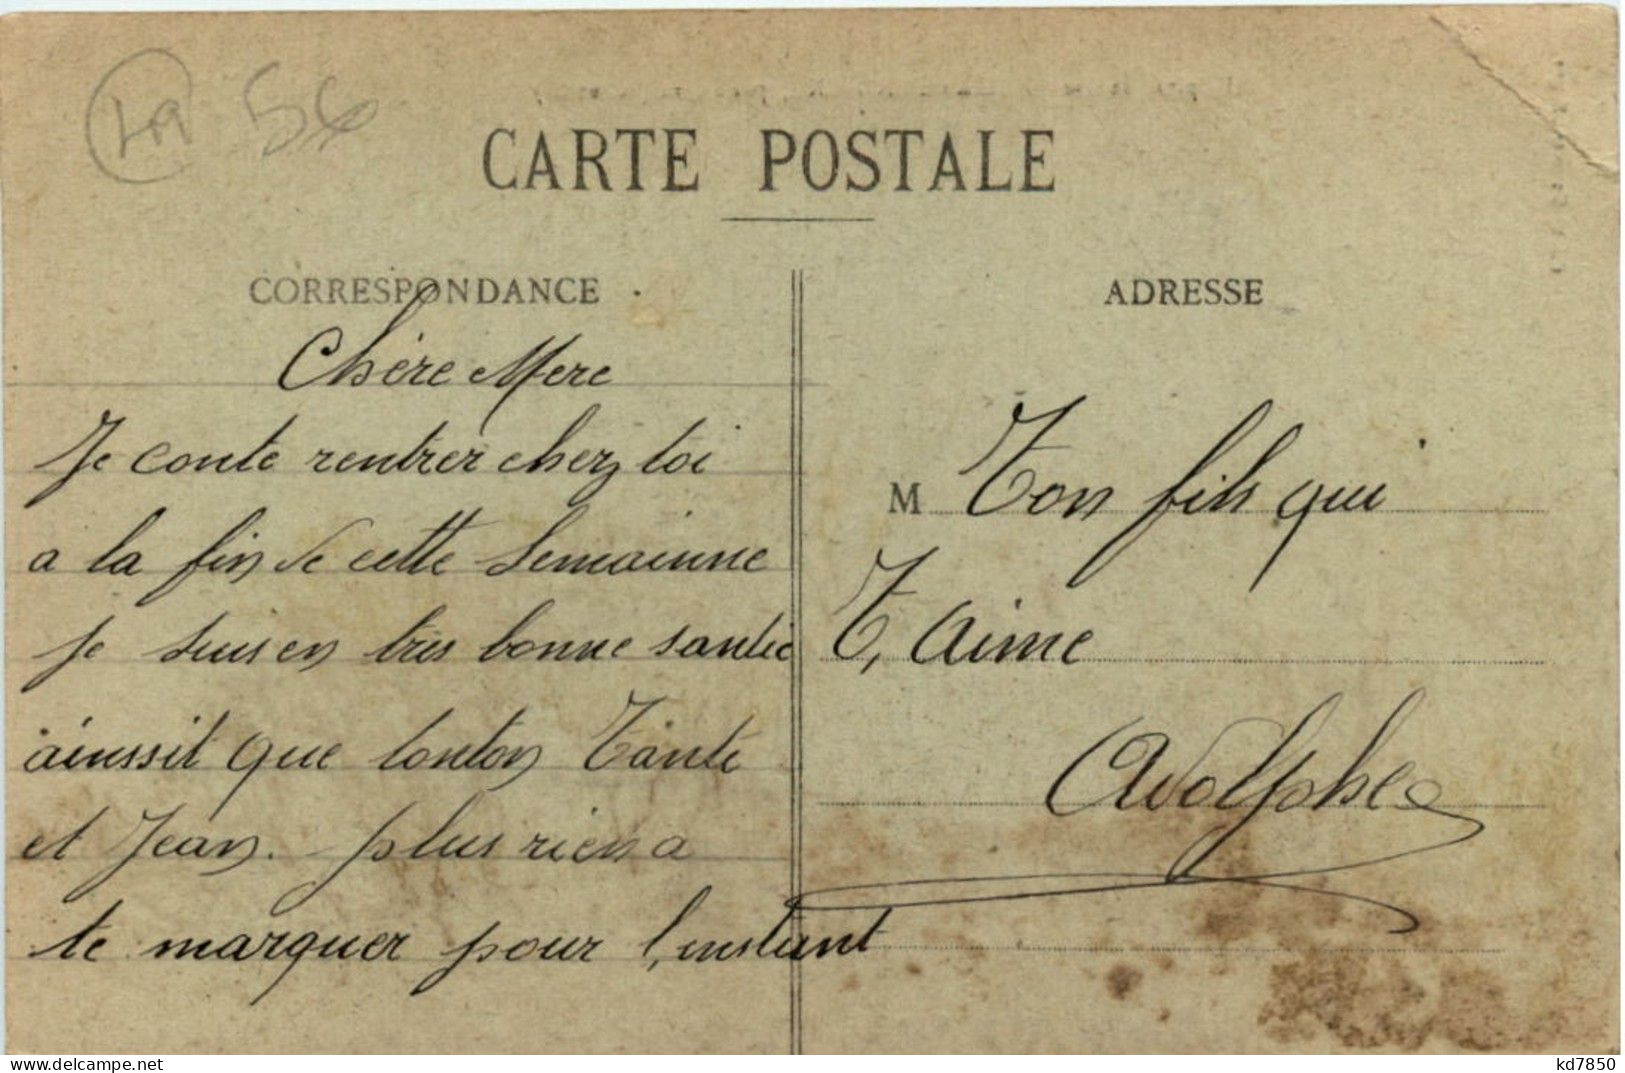 56
CARTE POSTALE
CORRESPONDANCE
Chère Mere
Je conte rentrer chez toi
a la fin de cette semainne
je suis en très bonne santée
ainssit que tonton Tante
et Jean. plus rien a
te marquer pour l,instant
ADRESSE
M Ton fils qui
T, aime
Adolphe
www.delcampe.net
kd7850